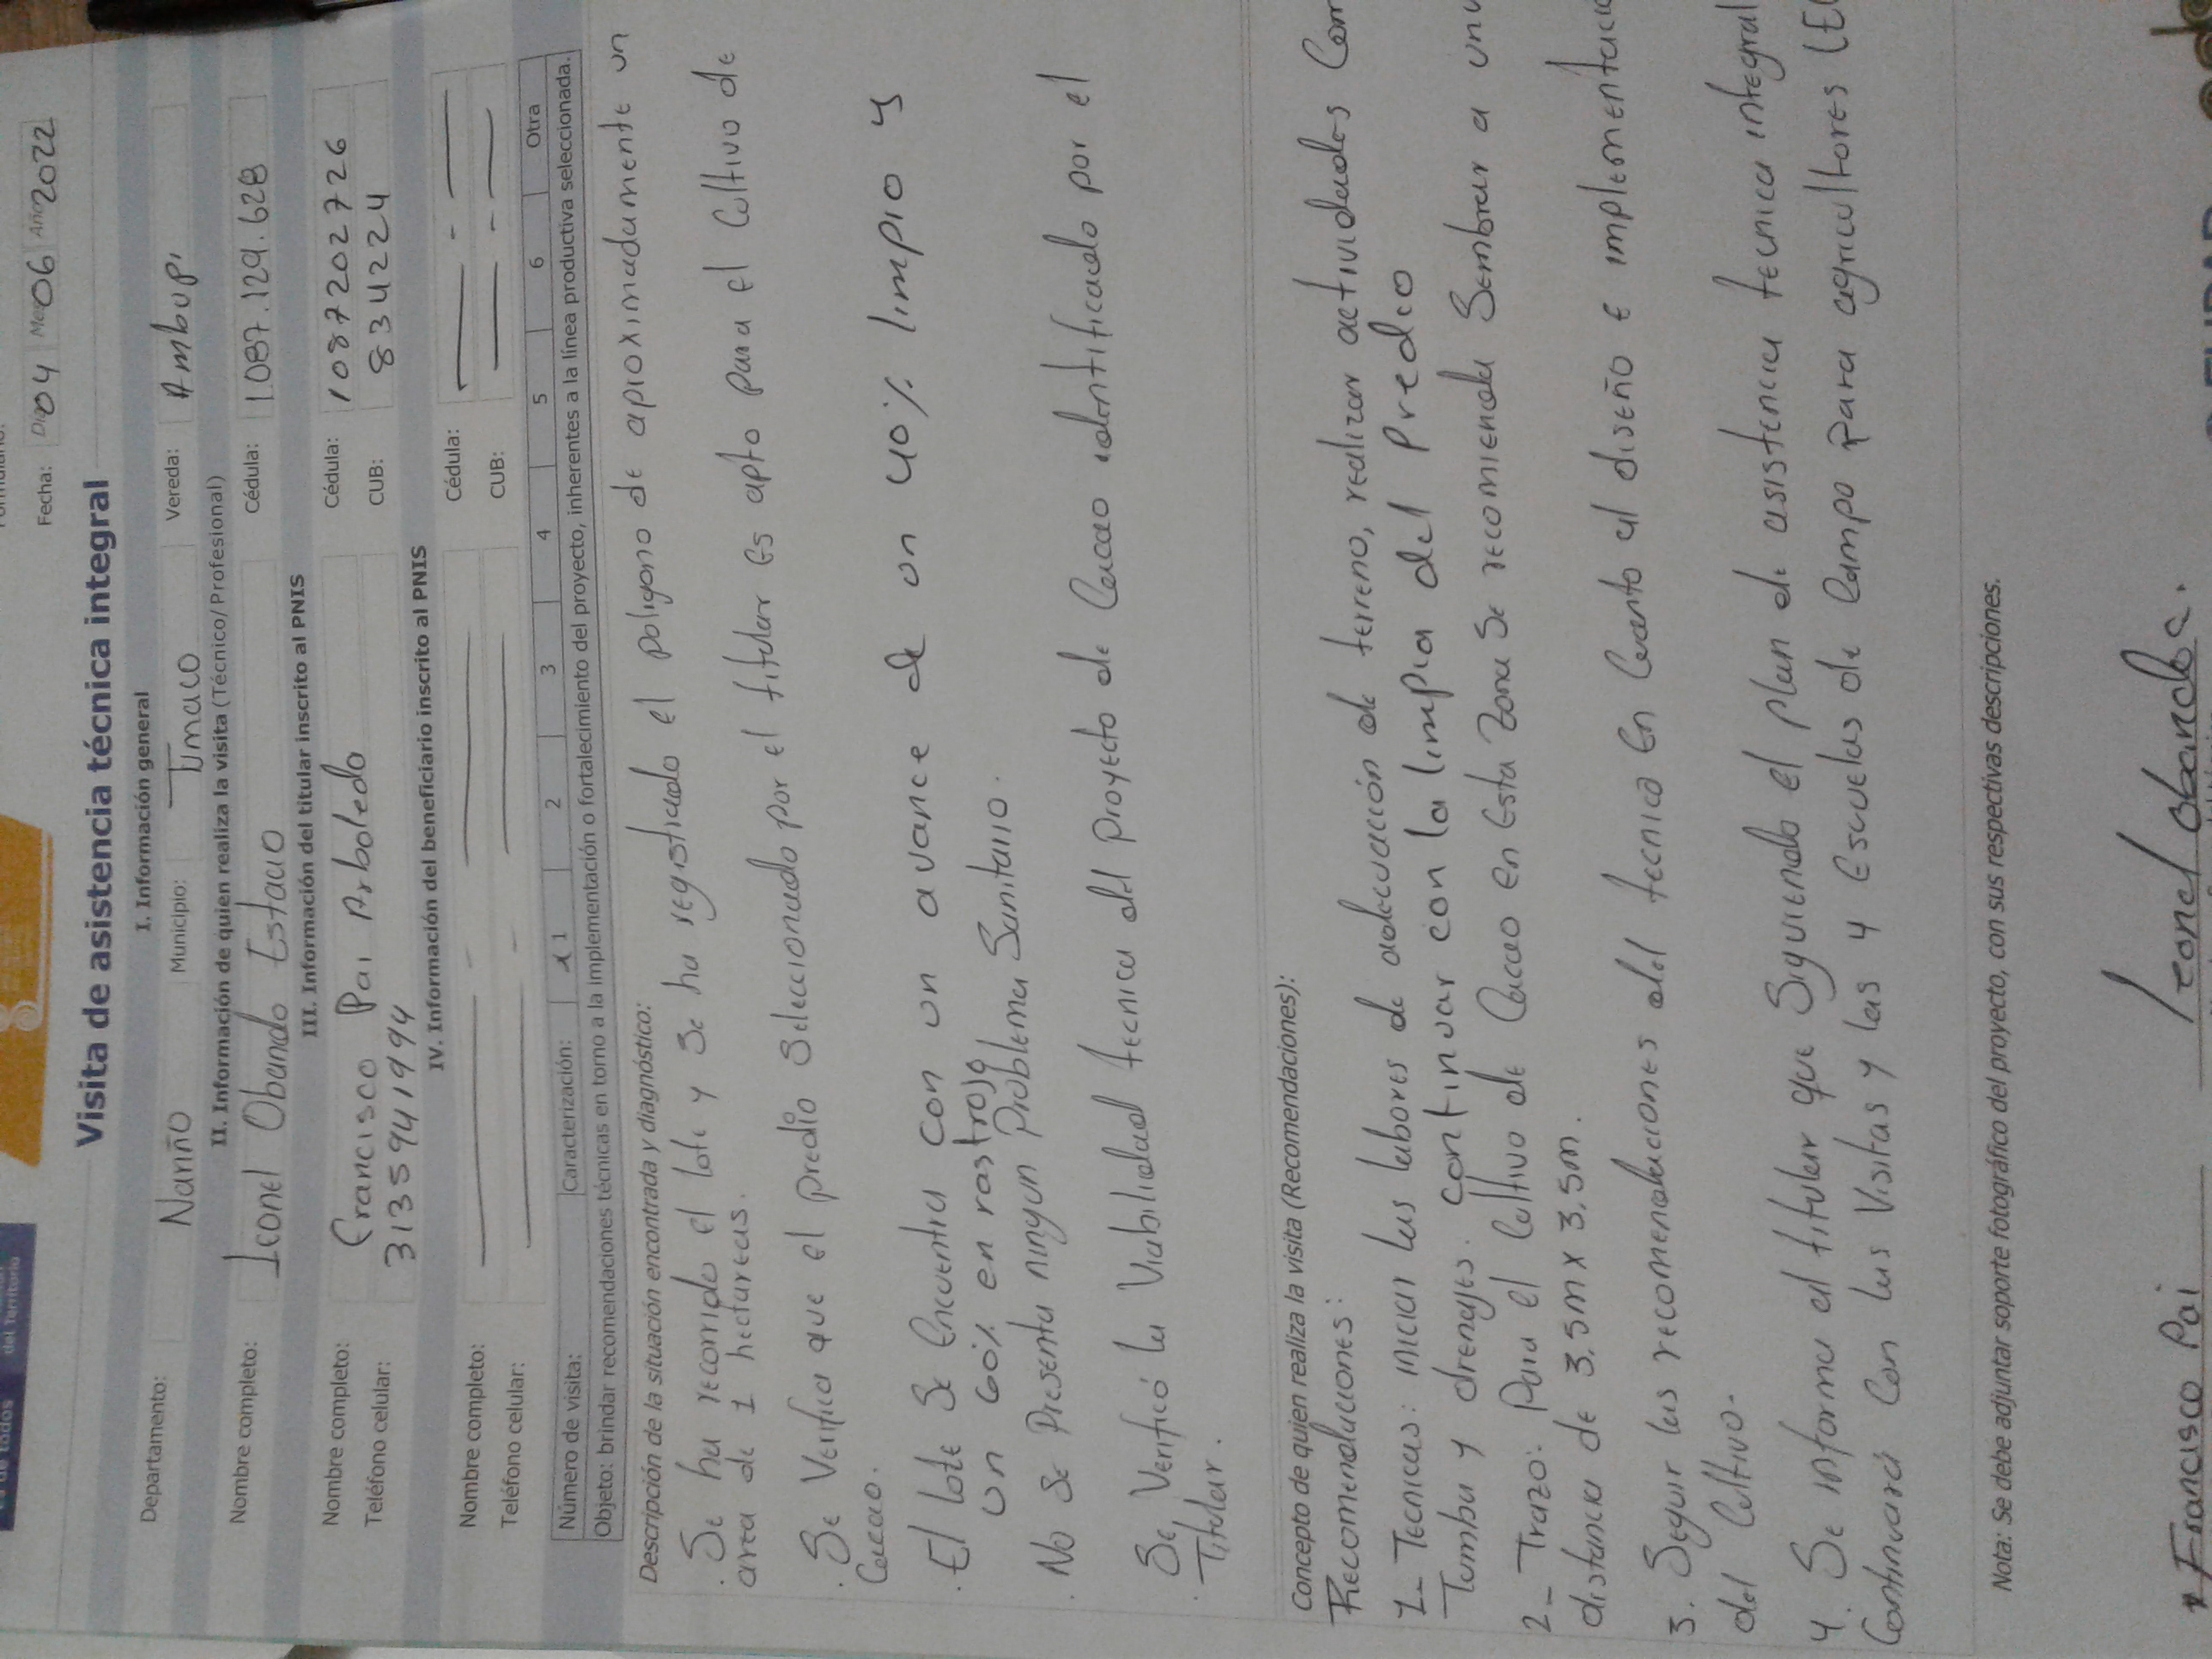 del Territorio
Fecha: Día 04 Mes 06 Año 2022
Visita de asistencia técnica integral
I. Información general
Departamento: Nariño Municipio: Tumaco Vereda: Ambupi
II. Información de quien realiza la visita (Técnico/Profesional)
Nombre completo: Leonel Obando Estacio Cédula: 1.087.129.628
III. Información del titular inscrito al PNIS
Nombre completo: Francisco Pai Arboledo Cédula: 1087202726
Teléfono celular: 3135941994 CUB: 834224
IV. Información del beneficiario inscrito al PNIS
Nombre completo: Cédula: -
Teléfono celular: - CUB: -
Número de visita: Caracterización: x 1 2 3 4 5 6 Otra
Objeto: brindar recomendaciones técnicas en torno a la implementación o fortalecimiento del proyecto, inherentes a la línea productiva seleccionada.
Descripción de la situación encontrada y diagnóstico:
. Se ha recorrido el lote y se ha registrado el poligono de aproximadamente un
area de 1 hectareas.
. Se Verifica que el predio Seleccionado por el titular Es apto para el Cultivo de
Cacao.
. El lote Se Encuentra con un avance de un 40% limpio y
un 60% en rastrojo
. No se Presenta ningun Problema Sanitario.
. Se Verificó la Viabilidad tecnica del Proyecto de Cacao identificado por el
Titular.
Concepto de quien realiza la visita (Recomendaciones):
Recomendaciones:
1- Tecnicas: iniciar las labores de adecuación de terreno, realizar actividades Com
Tumba y drenajes. continuar con la limpia del Predio
2- Trazo: Para el Cultivo de Cacao en Esta Zona Se recomienda Sembrar a una
distancia de 3.5m x 3.5m.
3. Seguir las recomendaciones del tecnico En Cuanto al diseño e implementació
del Cultivo.
4. Se informa al titular que Siguiendo el plan de asistencia tecnica integral
Continuará Con las Visitas y las 4 Escuelas de Campo Para agricultores (E
Nota: Se debe adjuntar soporte fotográfico del proyecto, con sus respectivas descripciones.
x Francisco Pai Leonel Obando E.